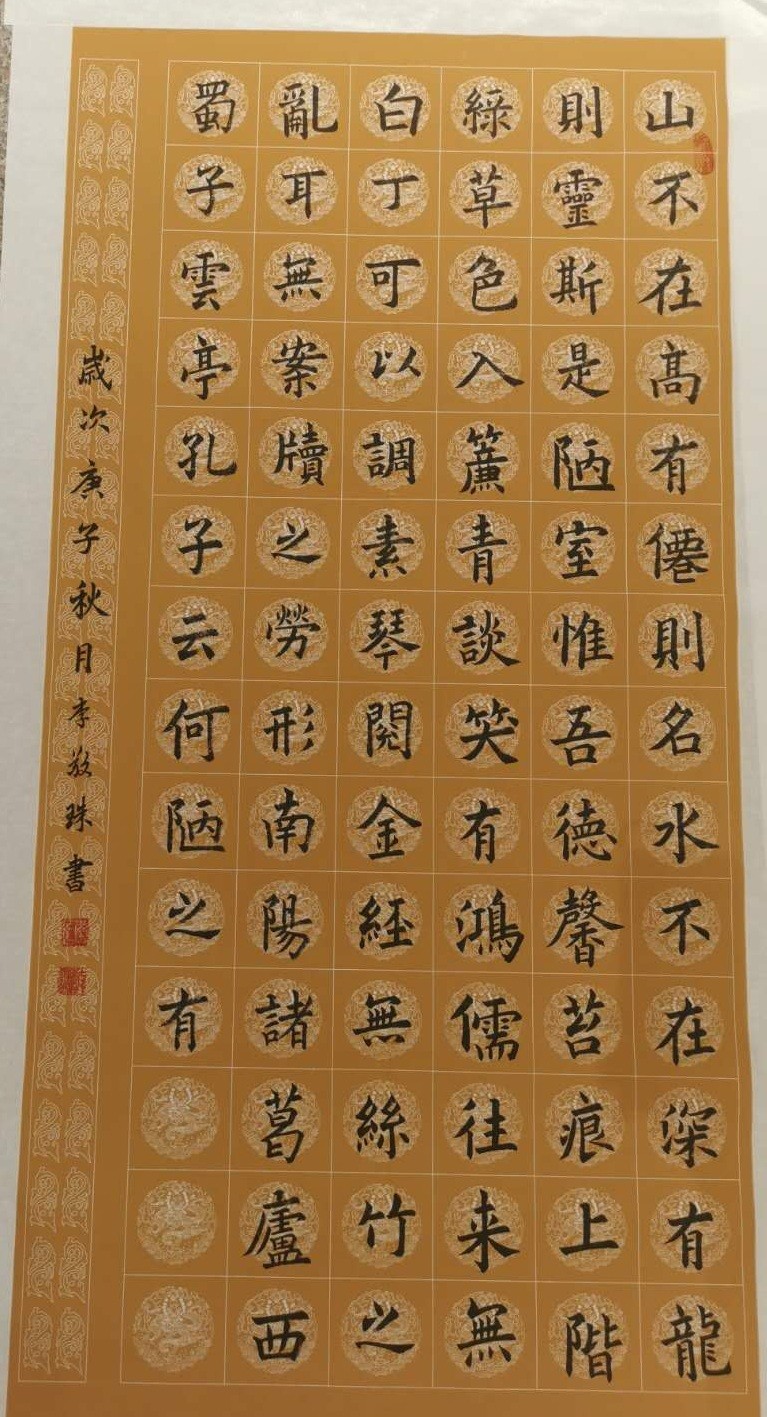 山不在高有僊則名水不在深有龍
則靈斯是陋室惟吾德馨苔痕上階
綠草色入簾青談笑有鴻儒往来無
白丁可以調素琴閱金經無絲竹之
亂耳無案牘之勞形南陽諸葛廬西
蜀子雲亭孔子云何陋之有
歲次庚子秋月李敬珠書